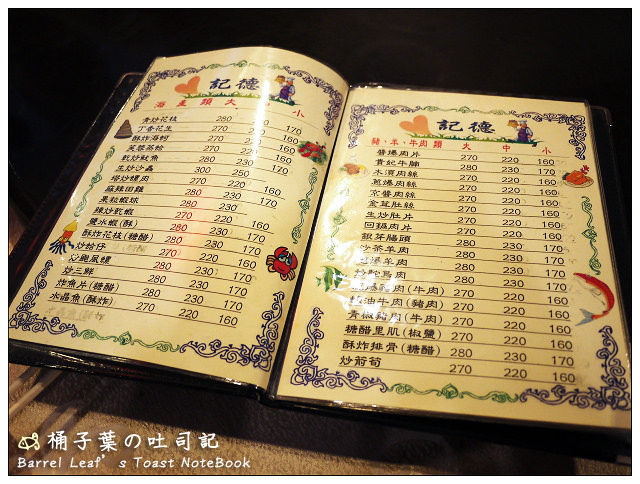 記德
海產類 大 中 小
青炒花枝 280 230 170
丁香花生 270 220 160
酥炸海蚵 270 220 160
芙蓉蒸蛤 270 220 160
乾炒魷魚 280 230 170
生炒沙蟲 300 250
塔炒螺肉 280 230 170
麻辣田雞 280 230 170
果粒蝦球 280 230 170
辣炒飯蝦 270 220
鹽水蝦(酥) 270 220 160
酥炸花枝(糖醋) 280 230 170
炒蛤仔 270 220 160
炒鳳螺 280 230 170
炒三鮮 280 230 170
炸魚片(糖醋) 280 230 170
水晶魚(酥炸) 270 220 160
記德
豬、羊、牛肉類 大 中 小
醬爆肉片 270 220 160
貴妃牛腩 280 230 170
木須肉絲 270 220 160
蔥爆肉絲 270 220 160
京醬肉絲 270 220 160
金茸肚絲 270 220 160
生炒肚片 270 220 160
回鍋肉片 270 220 160
銀芽腸頭 270 220 160
沙茶羊肉 280 230 170
爆羊肉 280 230 170
炒鴕鳥肉 280 230 170
肉(牛肉) 270 220 160
油牛肉(豬肉) 270 220 160
青椒豬肉(牛肉) 270 220 160
糖醋里肌(椒鹽) 270 220 160
酥炸排骨(糖醋) 280 230 170
炒箭筍 270 220 160
桶子葉の吐司記
Barrel Leaf's Toast NoteBook